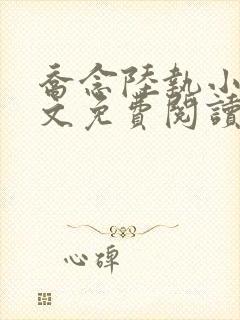 喬念陸執小
文免費閱讀
心碑